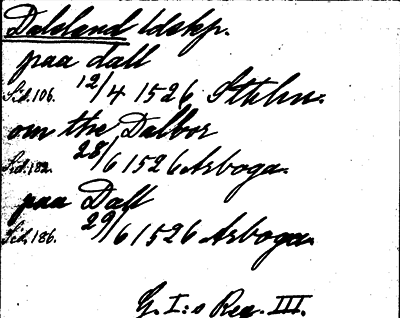 Dalsland ldskp.
paa dall
Sid. 106. 12/4 1526 Sthlm.
om the Dalbor
Sid. 182. 28/6 1526 Arboga.
paa Dall
Sid. 186. 29/6 1526 Arboga.
G. I:s Reg. III.